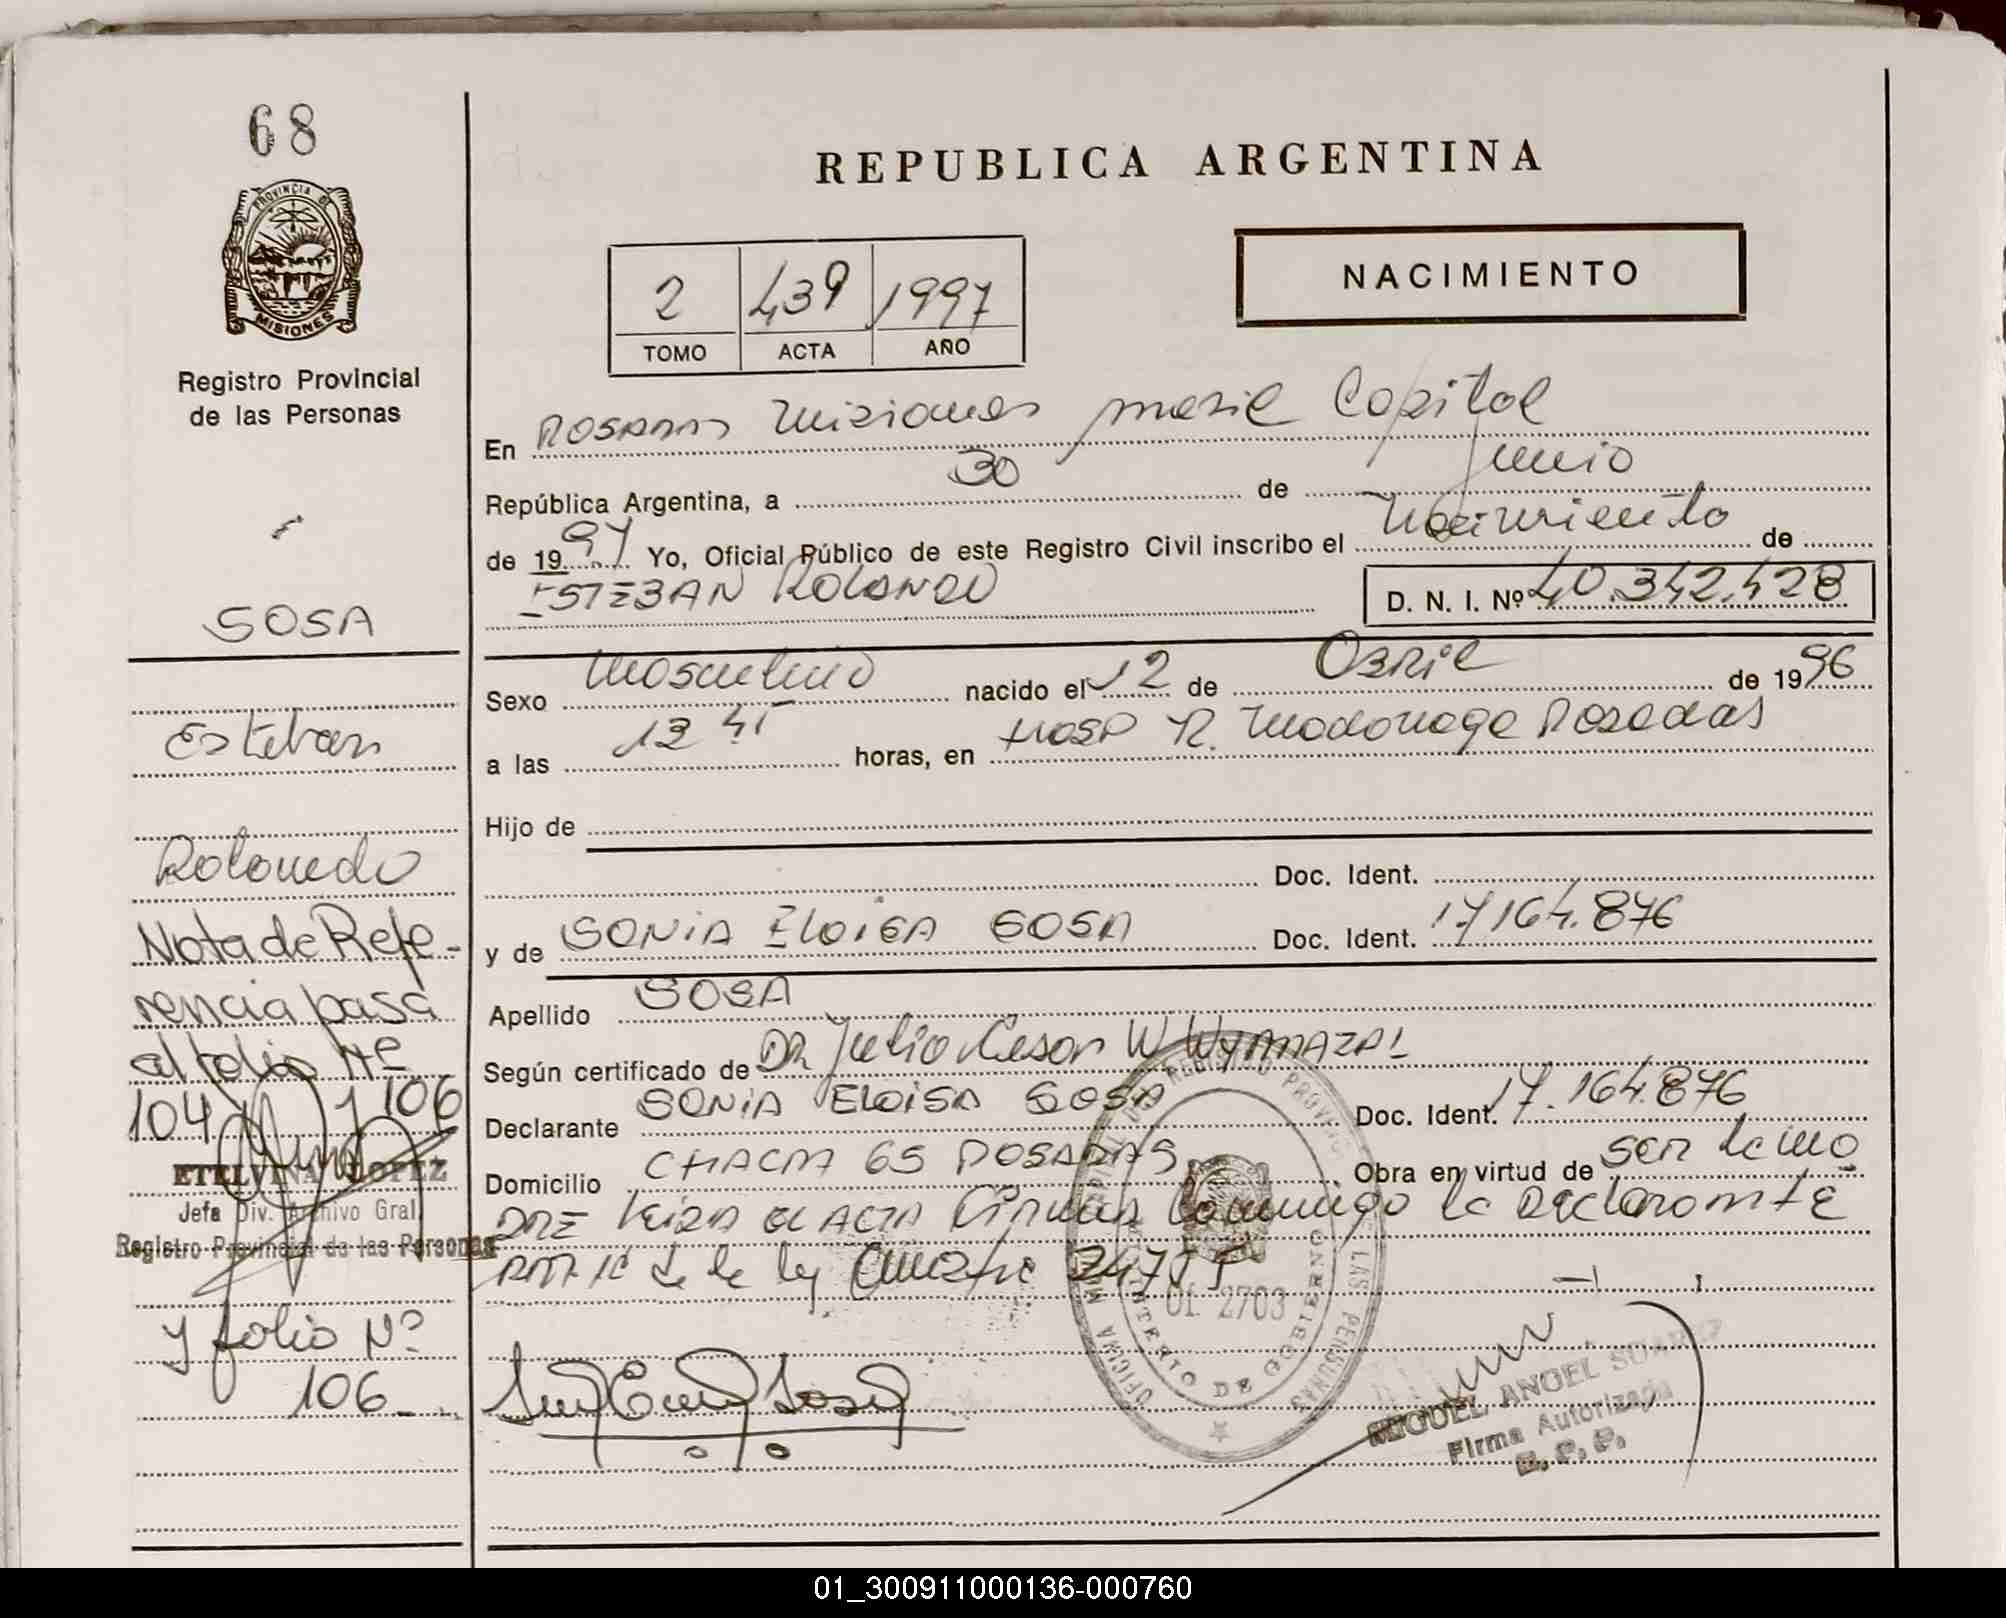 68
REPUBLICA ARGENTINA
PROVINCIA DE
MISIONES
Registro Provincial
de las Personas
2 439 1997
TOMO ACTA AÑO
NACIMIENTO
En Posadas Misiones Capital
República Argentina, a 30 de Junio
de 1997 Yo, Oficial Público de este Registro Civil inscribo el Nacimiento de
ESTEBAN ROLANDO D. N. I. Nº 40.342.428
SOSA
Esteban
Rolando
Nota de Refe-
rencia pasa
al folio Nº
104 y 106
ETELVINA LOPEZ
Jefa Div. Archivo Gral.
Registro Provincial de las Personas
y folio Nº
106
Sexo Masculino nacido el 12 de Abril de 1996
a las horas, en Hosp R. Madariaga Posadas
Hijo de
Doc. Ident.
y de SONIA ELOISA SOSA Doc. Ident. 17.164.876
Apellido SOSA
Según certificado de DR Julio Cesar W
Declarante SONIA ELOISA SOSA Doc. Ident. 17.164.876
Domicilio CHACRA 65 POSADAS Obra en virtud de ser la mo
DRE Leida el acta Firman conmigo la declarante
de la ley
OFICINA REGISTRO PROVINCIAL DE LAS PERSONAS
MINISTERIO DE GOBIERNO
01 2703
MIGUEL ANGEL SUAREZ
Firma Autorizada
R. P. P.
01_300911000136-000760